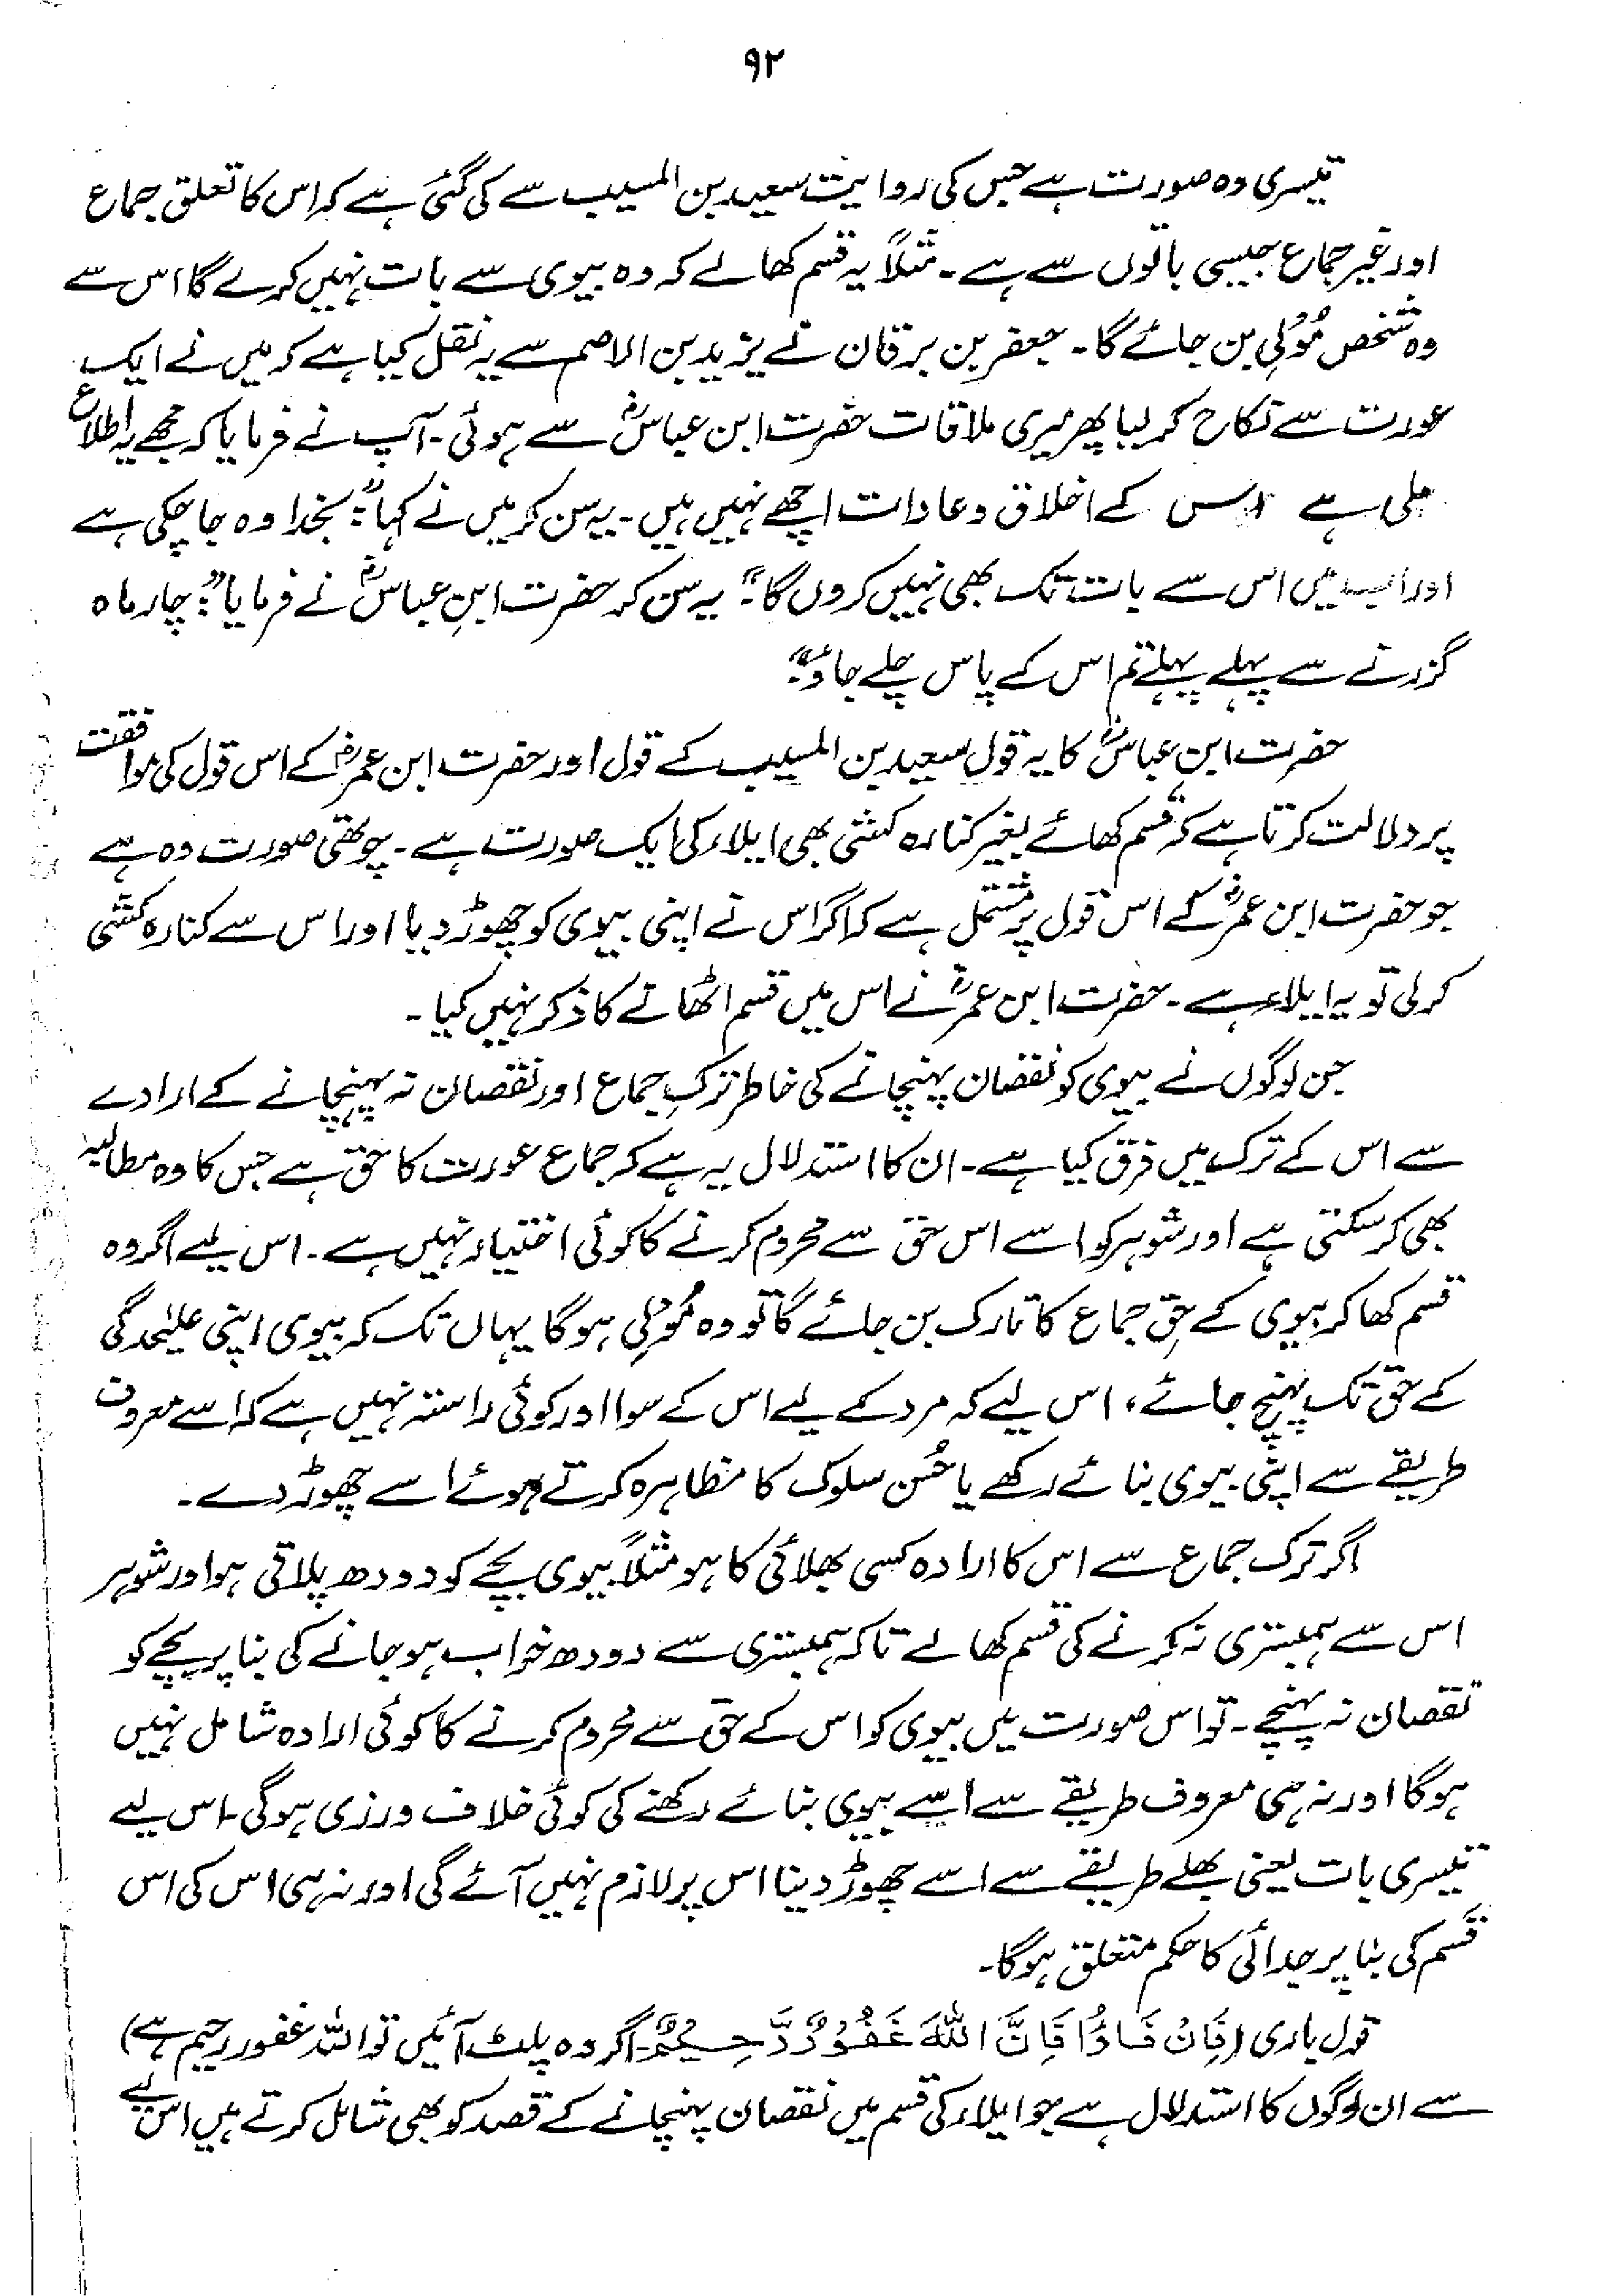 ۹۲
تیسری وہ صورت ہے جس کی روایت سعید بن المسیب سے کی گئی ہے کہ اس کا تعلق جماع
اور غیر جماع جیسی باتوں سے ہے۔ مثلاً یہ قسم کھا لے کہ وہ بیوی سے بات نہیں کرے گا اس سے
وہ شخص مُوْلِی بن جائے گا۔ جعفر بن برقان نے یزید بن الاصم سے یہ نقل کیا ہے کہ میں نے ایک
عورت سے نکاح کر لیا پھر میری ملاقات حضرت ابن عباسؓ سے ہوئی۔ آپ نے فرمایا کہ مجھے یہ اطلاع
ملی ہے اس کے اخلاق و عادات اچھے نہیں ہیں۔ یہ سن کر میں نے کہا: "بخدا وہ جا چکی ہے
اور اب میں اس سے بات تک بھی نہیں کروں گا۔" یہ سن کر حضرت ابنِ عباسؓ نے فرمایا: "چار ماہ
گزرنے سے پہلے پہلے تم اس کے پاس چلے جاؤ۔"
حضرت ابن عباسؓ کا یہ قول سعید بن المسیب کے قول اور حضرت ابن عمرؓ کے اس قول کی موافقت
پر دلالت کرتا ہے کہ قسم کھائے بغیر کنارہ کشی بھی ایلاء کی ایک صورت ہے۔ چوتھی صورت وہ ہے
جو حضرت ابن عمرؓ کے اس قول پر مشتمل ہے کہ اگر اس نے اپنی بیوی کو چھوڑ دیا اور اس سے کنارہ کشی
کر لی تو یہ ایلاء ہے۔ حضرت ابن عمرؓ نے اس میں قسم اٹھانے کا ذکر نہیں کیا۔
جن لوگوں نے بیوی کو نقصان پہنچانے کی خاطر ترکِ جماع اور نقصان نہ پہنچانے کے ارادے
سے اس کے ترک میں فرق کیا ہے۔ ان کا استدلال یہ ہے کہ جماع عورت کا حق ہے جس کا وہ مطالبہ
بھی کر سکتی ہے اور شوہر کو اسے اس حق سے محروم کرنے کا کوئی اختیار نہیں ہے۔ اس لیے اگر وہ
قسم کھا کر بیوی کے حقِ جماع کا تارک بن جائے گا تو وہ مُوْلِی ہوگا یہاں تک کہ بیوی اپنی علیٰحدگی
کے حق تک پہنچ جائے، اس لیے کہ مرد کے لیے اس کے سوا اور کوئی راستہ نہیں ہے کہ اسے معروف
طریقے سے اپنی بیوی بنائے رکھے یا حُسن سلوک کا مظاہرہ کرتے ہوئے اسے چھوڑ دے۔
اگر ترک جماع سے اس کا ارادہ کسی بھلائی کا ہو مثلاً بیوی بچے کو دودھ پلاتی ہو اور شوہر
اس سے ہمبستری نہ کرنے کی قسم کھا لے تاکہ ہمبستری سے دودھ خراب ہو جانے کی بنا پر بچے کو
نقصان نہ پہنچے۔ تو اس صورت میں بیوی کو اس کے حق سے محروم کرنے کا کوئی ارادہ شامل نہیں
ہوگا اور نہ ہی معروف طریقے سے اسے بیوی بنائے رکھنے کی کوئی خلاف ورزی ہوگی۔ اس لیے
تیسری بات یعنی بھلے طریقے سے اسے چھوڑ دینا اس پر لازم نہیں آئے گی اور نہ ہی اس کی اس
قسم کی بنا پر جدائی کا حکم متعلق ہوگا۔
قول باری (فَاِنْ فَاءُوْا فَاِنَّ اللّٰهَ غَفُوْرٌ رَّحِیْمٌ۔ اگر وہ پلٹ آئیں تو اللہ غفور رحیم ہے)
سے ان لوگوں کا استدلال ہے جو ایلاء کی قسم میں نقصان پہنچانے کے قصد کو بھی شامل کرتے ہیں اس لیے